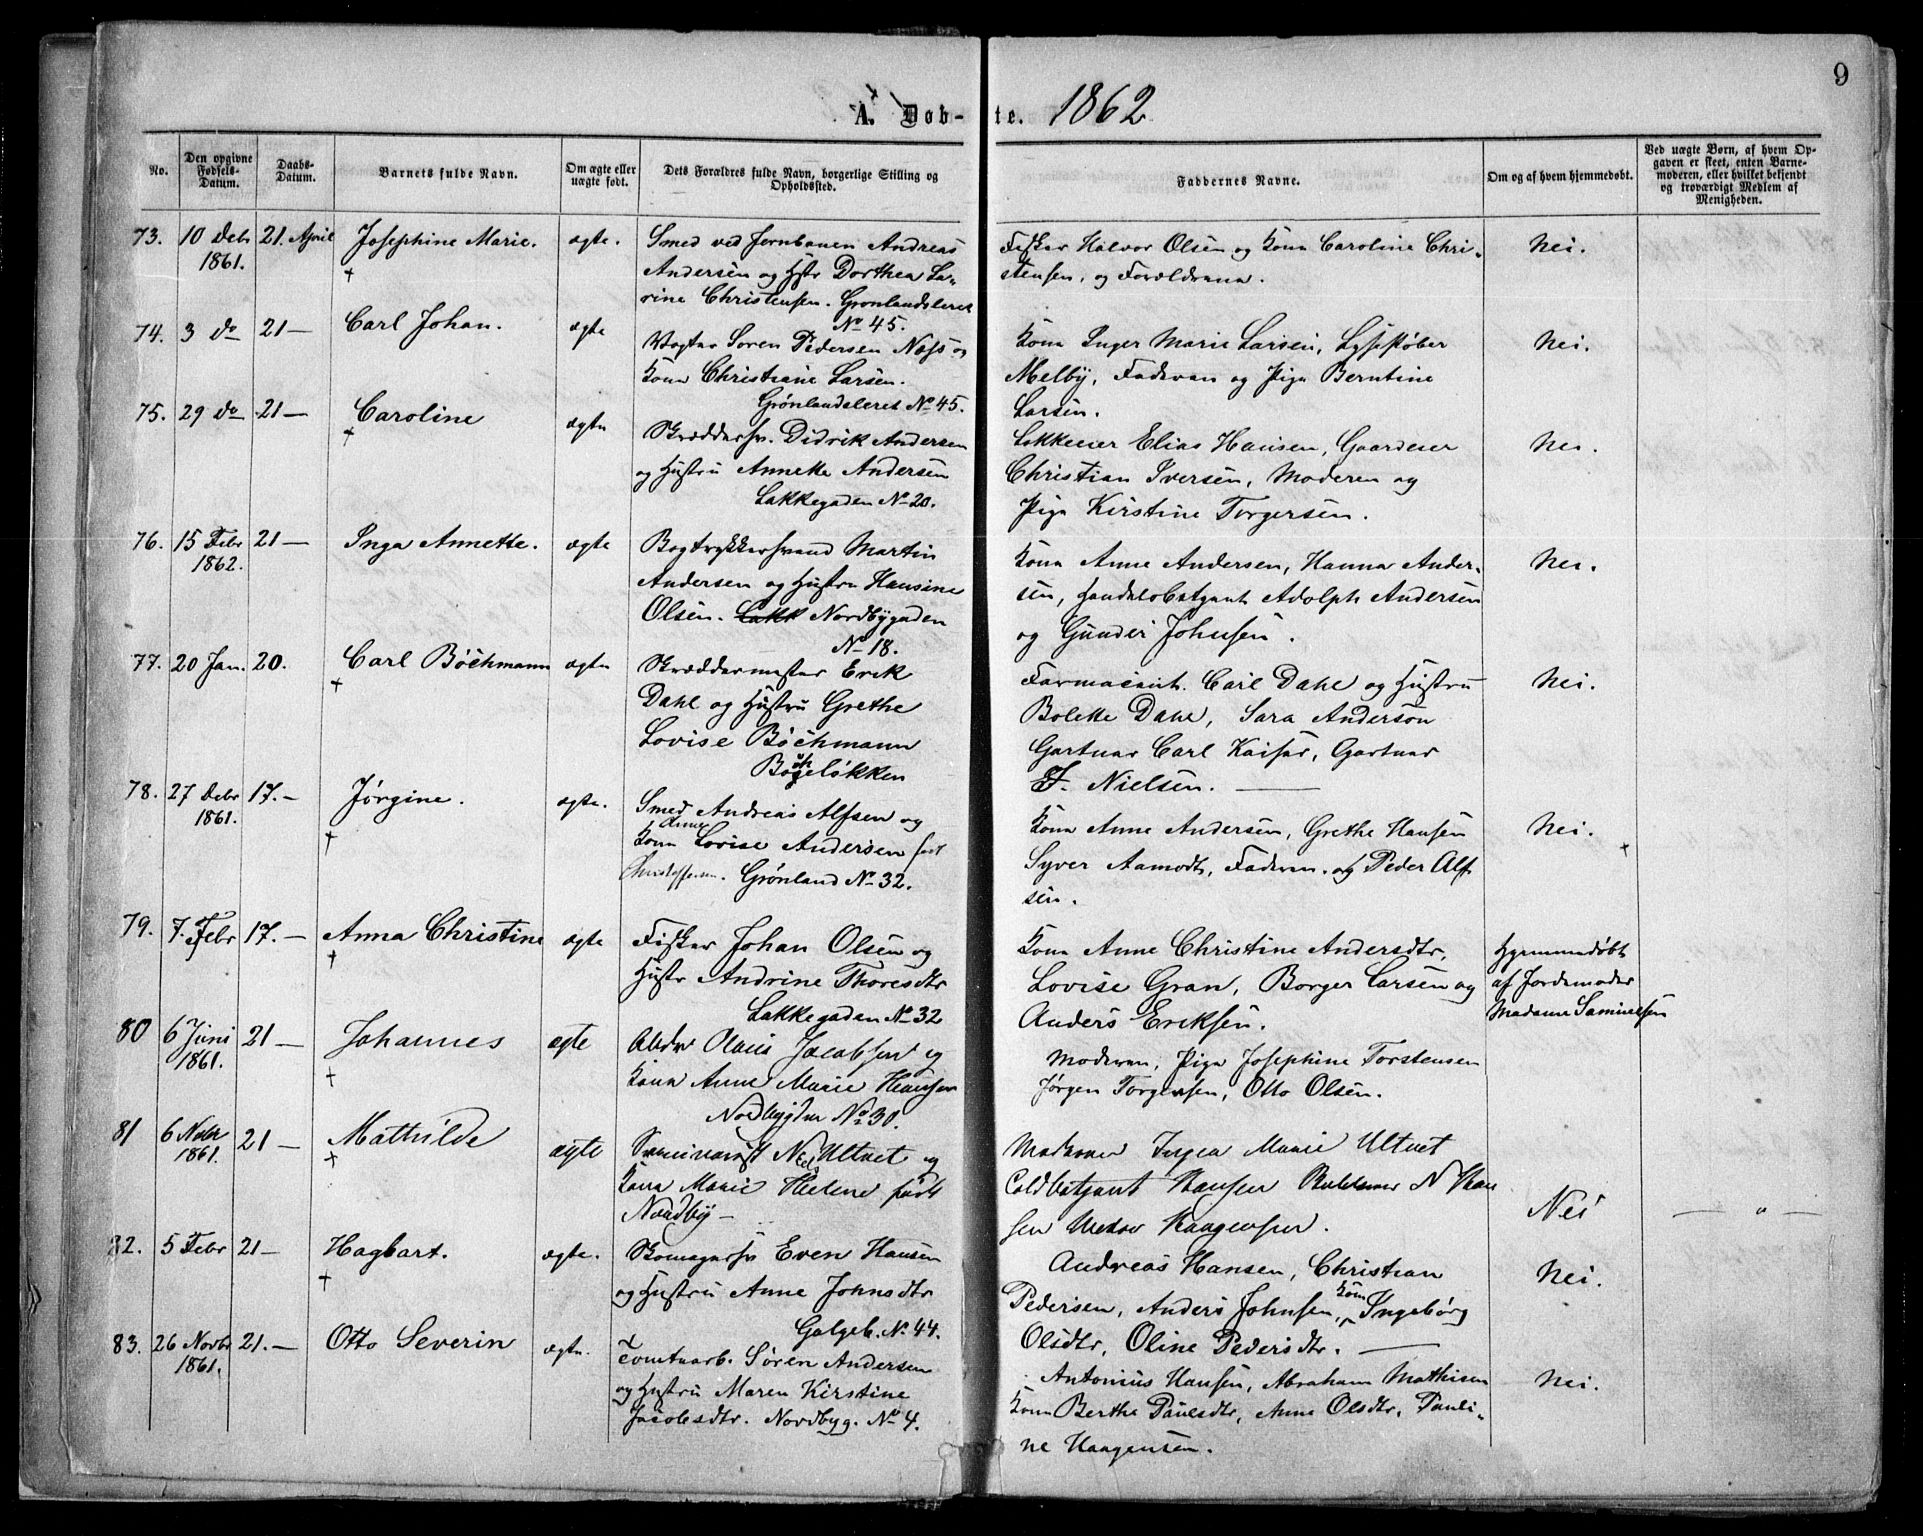 9
A. Døb- te. 1862
No.
Den opgivne Fødsels-Datum.
Daabs-Datum.
Barnets fulde Navn.
Om ægte eller uægte født.
Dets Forældres fulde Navn, borgerlige Stilling og Opholdssted.
Faddernes Navne.
Om og af hvem hjemmedøbt.
Ved uægte Børn, af hvem Opgaven er skeet, enten Barnemoderen, eller hvilket bekjendt og troværdigt Medlem af Menigheden.
73. 10 Debr 1861. 21. April Josephine Marie. ægte.
Smed ved Jernbanen Andreas
Andersen og Hstr Dorthea La-
rine Christensen. Grønlandsleret
No 45.
Fisker Halvor Olsen og Kone Caroline Chri-
stensen, og Forældrene.
Nei.
74. 3 do 21 — Carl Johan. ægte
Vogter Søren Pedersen Næss og
Kone Christiane Larsen.
Grønlandsleret No 45.
Kone Inger Marie Larsen, Lysestøber
Melby, Faderen og Pige Berntine
Larsen.
Nei.
75. 29 do 21 — Caroline ægte
Skræddersv. Didrik Andersen
og Hustru Anneke Andersen
Lakkegaden No 20.
Løkkeeier Elias Hansen, Gaardeier
Christian Iversen, Moderen og
Pige Kirstine Torgersen.
Nei.
76. 15 Febr 1862. 21 — Inga Annette. ægte
Bogtrykkersvend Martin
Andersen og Hustru Hansine
Olsen. Lakk Nordbygaden
No 18.
Kone Anne Andersen, Hanna Ander-
sen, Handelsbetjent Adolph Andersen
og Gunder Johnsen.
Nei.
77. 20 Jan. 20. Carl Bøchmann ægte
Skræddermester Erik
Dahl og Hustru Grethe
Lovise Bøchmann
Bøgeløkken
Farmaceut. Carl Dahl og Hustru
Bolette Dahl, Sara Anderson
Gartner Carl Kaiser, Gartner
F. Nielsen. —
Nei.
78. 27 Debr 1861. 17. — Jørgine. ægte.
Smed Andreas Alfsen og
Kone Anne Lovise Andersen født
Christoffersen. Grønland No 32.
Kone Anne Andersen, Grethe Hansen
Syver Aamodt, Faderen. og Peder Alf-
sen.
Nei.
79. 7. Febr 17. — Anna Christine ægte
Fisker Johan Olsen og
Hustr Andrine Thoresdtr
Lakkegaden No 32
Kone Anne Christine Andersdtr,
Lovise Gran, Borger Larsen og
Anders Eriksen.
Hjemmedøbt
af Jordemoder
Madame Samuelsen
80 6 Juni 1861. 21 — Johannes ægte
Arbdr Olaus Jacobsen og
Kone Anne Marie Hansen
Nordbygden No 30.
Moderen, Pige Josephine Torstensen
Jørgen Torgersen, Otto Olsen.
81 6 Nobr 1861. 21 — Mathilde ægte
Seminarist N Eds Ultvet og
Kone Marie Helene født
Nordby —
Madamer Ingea Marie Ultvet
Hansen N Han
sen Haagensen.
Nei
— " —
82. 5 Febr 21 — Hagbart. ægte.
Skomagersv Even Hansen
og Hustru Anne Johnsdtr
Galgeb. No 44.
Andreas Hansen, Christian
Pedersen, Anders Johnsen, Kone Ingeborg
Olsdtr, Oline Pedersdtr. —
Nei.
83. 26 Novbr 1861. 21. — Otto Severin ægte.
Tomtearb. Søren Andersen
og Hustru Maren Kirstine
Jacobsdtr. Nordbyg. No 4.
Antonius Hansen, Abraham Mathisen
Kone Berthe Paulsdtr, Anne Olsdtr, Pauli-
ne Haagensen.
Nei.